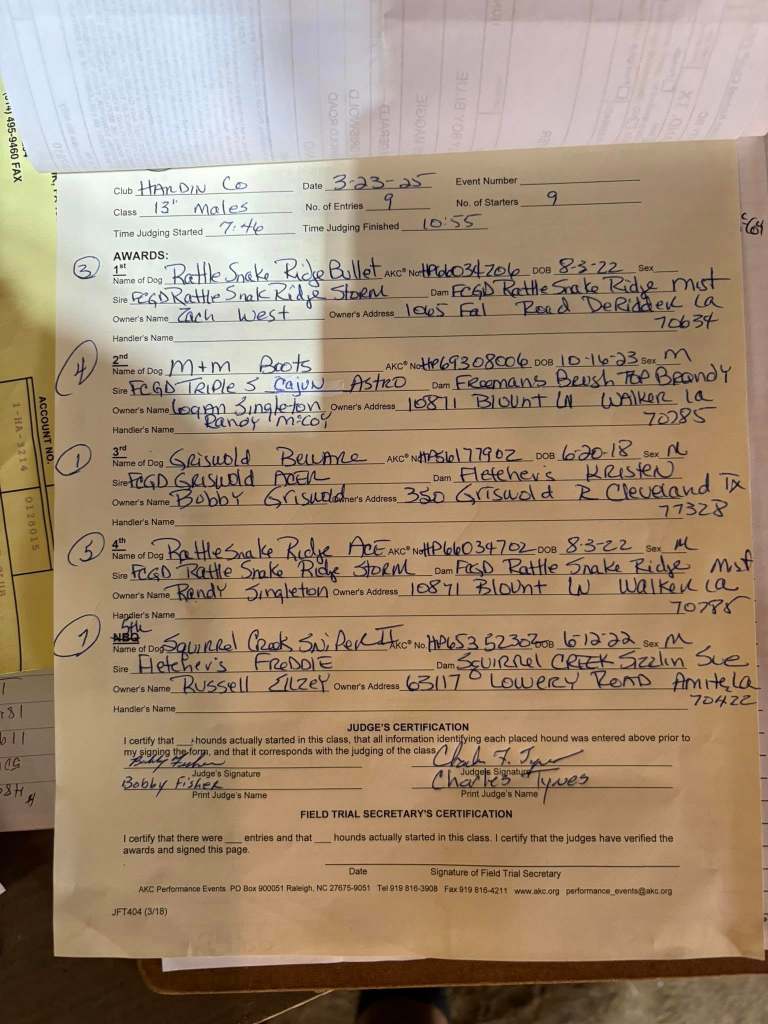 495-9460 FAX
ACCOUNT NO.
1-HA-3214
0128015
Club HARDIN Co Date 3-23-25 Event Number
Class 13" Males No. of Entries 9 No. of Starters 9
Time Judging Started 7:46 Time Judging Finished 10:55
AWARDS:
3 1st
Name of Dog Rattle Snake Ridge Bullet AKC® No HP66034706 DOB 8-3-22 Sex
Sire FCGD Rattle Snak Ridge Storm Dam FCGD Rattle Snake Ridge Mist
Owner's Name Zach West Owner's Address 1065 Fal Road DeRidder La
70634
Handler's Name
4 2nd
Name of Dog M+M Boots AKC® No HP69308006 DOB 10-16-23 Sex M
Sire FCGD TRIPLE S Cajun Astro Dam Freemans Brush Top Brandy
Owner's Name Logan Singleton Owner's Address 10871 Blount LN WALKER La
Randy McCoy 70785
Handler's Name
1 3rd
Name of Dog Griswold Beware AKC® No HP56177902 DOB 6-20-18 Sex M
Sire FCGD Griswold Dam Fletcher's KRISTEN
Owner's Name Bobby Griswold Owner's Address 350 Griswold R Cleveland Tx
77328
Handler's Name
5 4th
Name of Dog Rattle Snake Ridge ACE AKC® No HP66034702 DOB 8-3-22 Sex M
Sire FCGD Rattle Snake Ridge Storm Dam FCGD Rattle Snake Ridge Mist
Owner's Name Randy Singleton Owner's Address 10871 Blount LN Walker La
70785
Handler's Name
7 5th
NBQ
Name of Dog Squirrel Creek Sniper II AKC® No HP65352302 DOB 6-12-22 Sex M
Sire Fletcher's FREDDIE Dam Squirrel CREEK Sizzlin Sue
Owner's Name Russell Elzey Owner's Address 63117 Lowery Road Amite, La
70422
Handler's Name
JUDGE'S CERTIFICATION
I certify that hounds actually started in this class, that all information identifying each placed hound was entered above prior to
my signing the form, and that it corresponds with the judging of the class.
Bobby Fisher Charles F. Tynes
Judge's Signature Judge's Signature
Bobby Fisher Charles Tynes
Print Judge's Name Print Judge's Name
FIELD TRIAL SECRETARY'S CERTIFICATION
I certify that there were ___ entries and that ___ hounds actually started in this class. I certify that the judges have verified the
awards and signed this page.
Date Signature of Field Trial Secretary
AKC Performance Events PO Box 900051 Raleigh, NC 27675-9051 Tel 919 816-3908 Fax 919 816-4211 www.akc.org performance_events@akc.org
JFT404 (3/18)